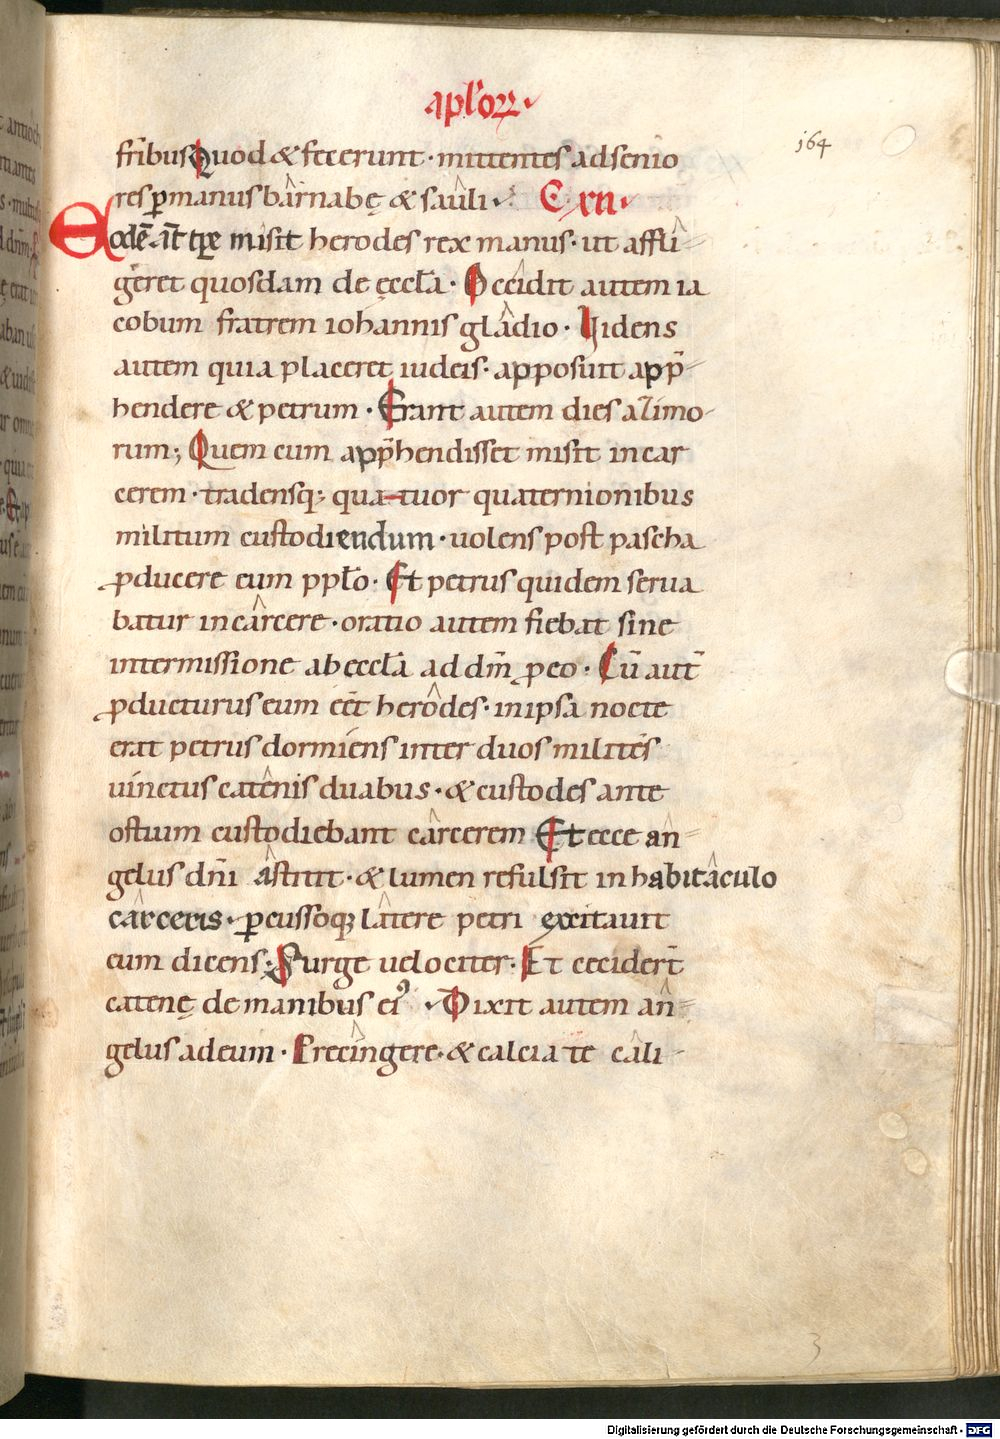 apl'oꝝ.
164
fr̄ibus Quod & fecerunt · mittentes ad senio
res ꝑ manus bârnabę & sâuli · C. xii.
Eodē aūt tp̄r misit herodes rex manus · ut afflî
geret quosdam de ęccl̄a · Occîdit autem ia
cobum fratrem iohannis glâdio · Uidens
autem quia placeret iudeis · apposuit app̄
hendere & petrum · Erant autem dies azimo
rum; Quem cum app̄hendisset misit in car
cerem · tradensq; quatuor quaternionibus
militum custodiendum · uolens post pascha
ꝓducere eum pp̄lo · Et petrus quidem serua
batur in cârcere · oratio autem fiebat sine
intermissione ab eccl̄a ad dm̄ ꝓ eo · Cū aut̄
ꝓducturus eum eēt herôdes · in ipsa nocte
erat petrus dormiens inter duos milites
uinctus catênis duabus · & custodes ante
ostium custodiebant cârcerem Et ecce an
gelus dn̄i âstitit · & lumen refulsit in habitâculo
cârceris · ꝑcussoq; lâtere petri excitauit
cum dicens · Surge uelociter · Et cecider̄t
catenę de manibus ei᾿ · Dixit autem an
gelus ad eum · Precîngere · & calcia te câli
3
Digitalisierung gefördert durch die Deutsche Forschungsgemeinschaft - DFG